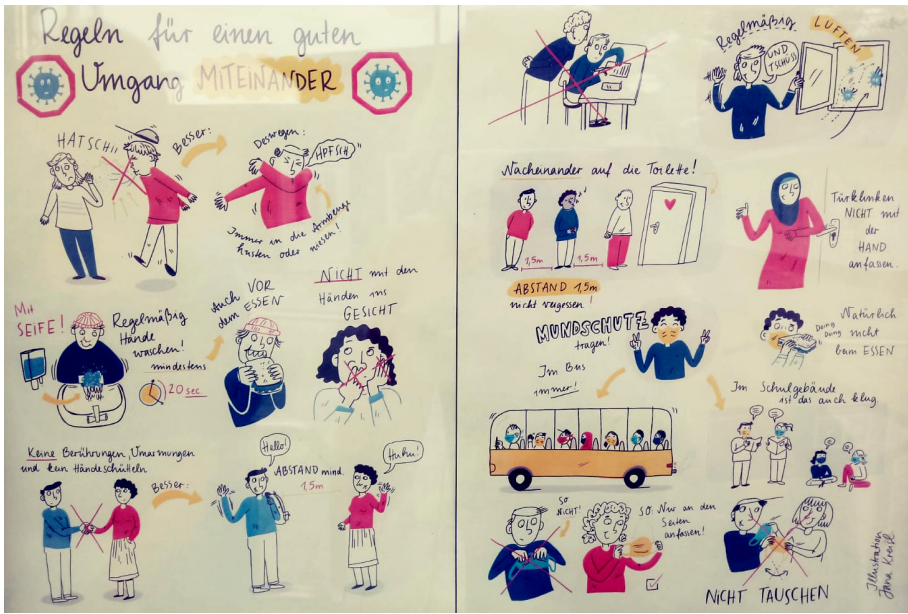 Regeln für einen guten
Umgang MITEINANDER
HATSCHII
Besser:
Deswegen:
HPFSCH
Immer in die Armbeuge
husten oder niesen!
Mit
SEIFE!
Regelmäßig
Hände
waschen!
mindestens
20 sec
Auch
VOR
dem ESSEN
NICHT mit den
Händen ins
GESICHT
Keine Berührungen, Umarmungen
und kein Händeschütteln
Besser:
Hallo!
ABSTAND mind.
1,5m
Huhu!
Regelmäßig
LÜFTEN
UND
TSCHÜSS
Nacheinander auf die Toilette!
1,5m
1,5m
ABSTAND 1,5m
nicht vergessen!
Türklinken
NICHT mit
der
HAND
anfassen.
MUNDSCHUTZ
tragen!
Im Bus
immer!
Natürlich
nicht
beim ESSEN
Im Schulgebäude
ist das auch klug.
SO
NICHT!
SO: Nur an den
Seiten
anfassen!
NICHT TAUSCHEN
Illustration
Jana Kreisl